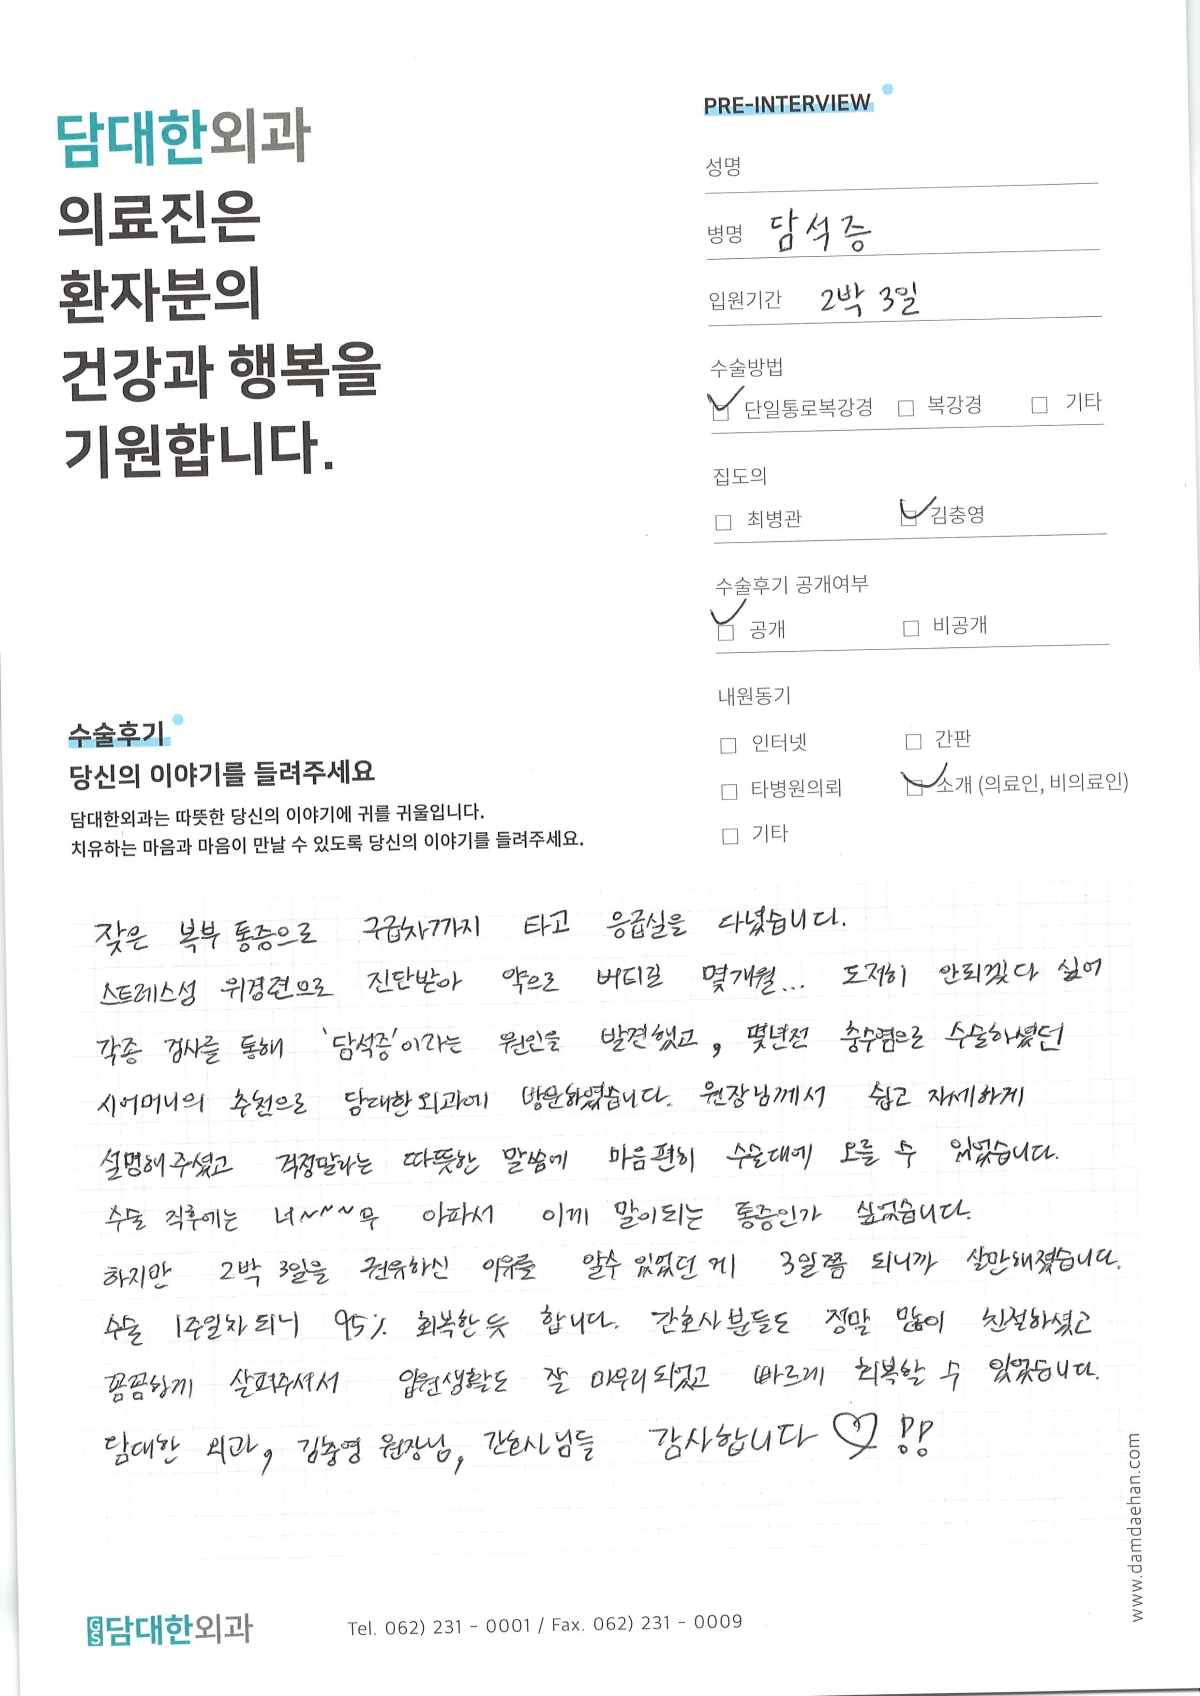 담대한외과
의료진은
환자분의
건강과 행복을
기원합니다.
PRE-INTERVIEW
성명
병명 담석증
입원기간 2박 3일
수술방법
단일통로복강경 복강경 기타
집도의
최병관 김충영
수술후기 공개여부
공개 비공개
내원동기
인터넷 간판
타병원의뢰 소개 (의료인, 비의료인)
기타
수술후기
당신의 이야기를 들려주세요
담대한외과는 따뜻한 당신의 이야기에 귀를 귀울입니다.
치유하는 마음과 마음이 만날 수 있도록 당신의 이야기를 들려주세요.
잦은 복부 통증으로 구급차까지 타고 응급실을 다녔습니다.
스트레스성 위경련으로 진단받아 약으로 버티길 몇개월... 도저히 안되겠다 싶어
각종 검사를 통해 '담석증'이라는 원인을 발견했고, 몇년전 충수염으로 수술하셨던
시어머니의 추천으로 담대한외과에 방문하였습니다. 원장님께서 쉽고 자세하게
설명해주셨고 걱정말라는 따뜻한 말씀에 마음편히 수술대에 오를 수 있었습니다.
수술 직후에는 너~~~무 아파서 이게 말이되는 통증인가 싶었습니다.
하지만 2박 3일을 권유하신 이유를 알수 있었던 게 3일쯤 되니까 살만해졌습니다.
수술 1주일차 되니 95% 회복한 듯 합니다. 간호사분들도 정말 많이 친절하셨고
꼼꼼하게 살펴주셔서 입원생활도 잘 마무리 되었고 빠르게 회복할 수 있었습니다.
담대한 외과, 김충영 원장님, 간호사님들 감사합니다 ♡!!
GS담대한외과
Tel. 062) 231 - 0001 / Fax. 062) 231 - 0009
www.damdaehan.com